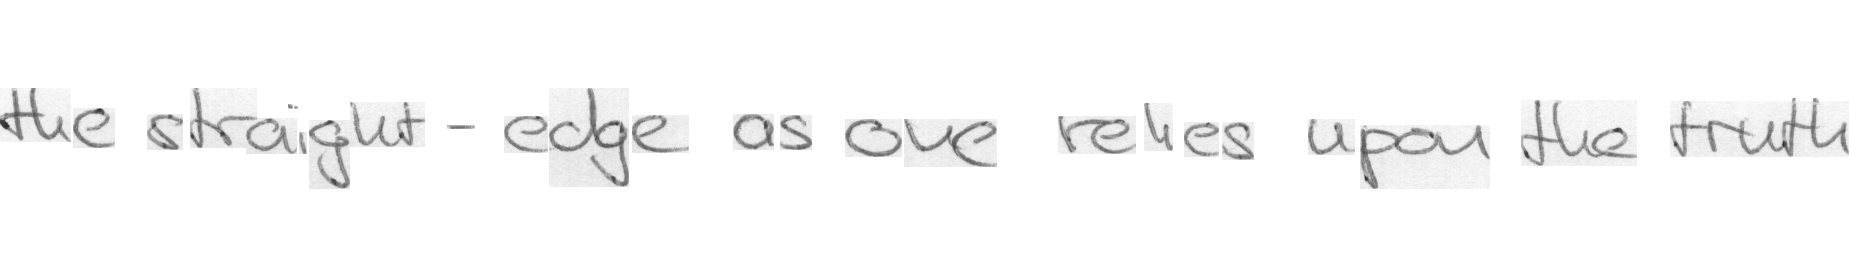 the straight - edge as one relies upon the truth